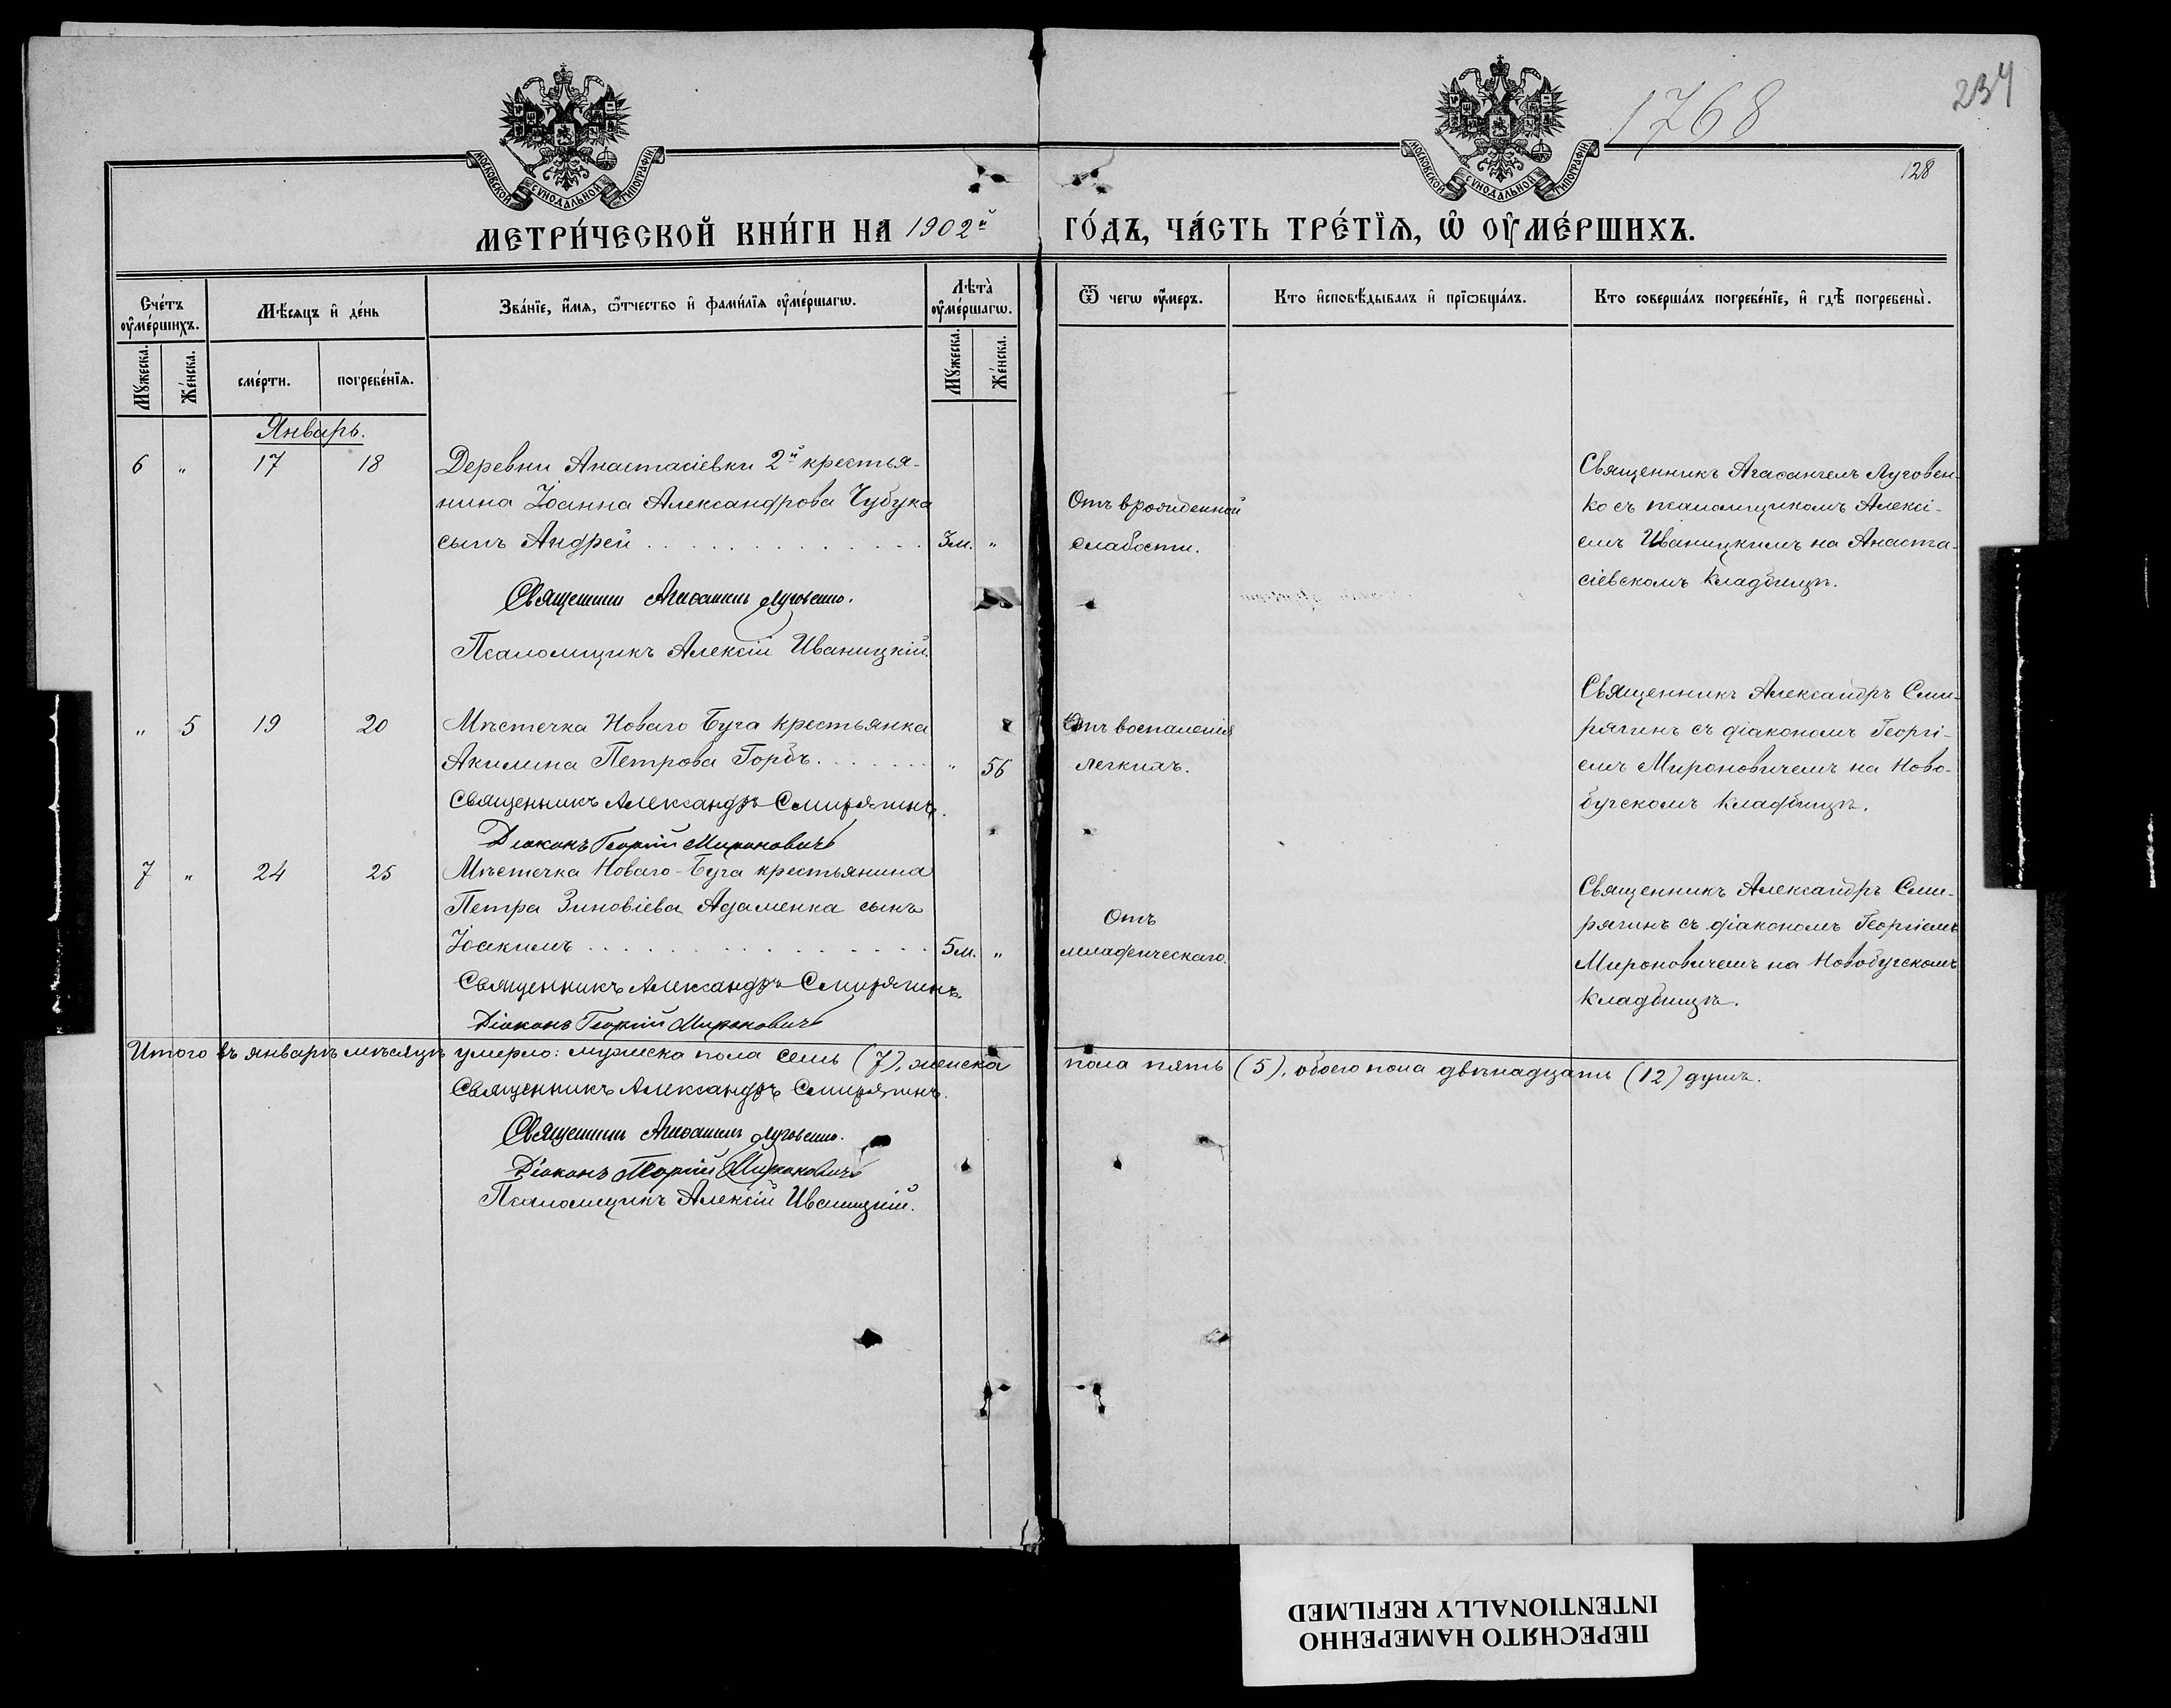 1768
234
128
МОСКОВСКОЙ СѴНОДАЛЬНОЙ ТИПОГРАФІИ
МОСКОВСКОЙ СѴНОДАЛЬНОЙ ТИПОГРАФІИ
МЕТРИ́ЧЕСКОЙ КНИ́ГИ НА 1902й ГО́ДЪ, ЧА́СТЬ ТРЕ́ТЇѦ, Ѡ҆ ОУ҆МЕ́РШИХЪ.
Сче́тъ оу҆ме́ршихъ.
Мꙋ́жеска.
Же́нска.
Мѣ́сяцъ и҆ де́нь
сме́рти.
погребе́нїѧ.
Зва́нїе, и҆́мя, ѻ҆́тчество и҆ фами́лїѧ оу҆ме́ршагѡ.
Лѣта̀ оу҆ме́ршагѡ.
Мꙋ́жеска.
Же́нска.
Ѿ чегѡ оу҆́меръ.
Кто и҆сповѣ́дывалъ и҆ прїѡбща́лъ.
Кто соверша́лъ погребе́нїе, и҆ гдѣ̀ погребены̀.
Январь.
6 " 17 18
Деревни Анастасіевки 2й крестья-
нина Іоанна Александрова Чубука
сынъ Андрей
3м. "
Отъ врожденной
слабости.
Священникъ Агаѳангелъ Луговен-
ко съ псаломщикомъ Алексі-
емъ Иваницкимъ на Анаста-
сіевскомъ кладбищѣ.
Священникъ Агаѳангелъ Луговенко.
Псаломщикъ Алексій Иваницкій.
" 5 19 20
Мѣстечка Новаго Буга крестьянка
Акилина Петрова Горбъ.
" 56
Отъ воспаленія
легкихъ.
Священникъ Александръ Сми-
рягинъ съ діакономъ Георгі-
емъ Мироновичемъ на Ново-
бугскомъ кладбищѣ.
Священникъ Александръ Смирягинъ.
Діаконъ Георгій Мироновичъ
7 " 24 25
Мѣстечка Новаго-Буга крестьянина
Петра Зиновіева Адаменка сынъ
Іоакимъ
5м. "
Отъ
младенческаго.
Священникъ Александръ Сми-
рягинъ съ діакономъ Георгіемъ
Мироновичемъ на Новобугскомъ
кладбищѣ.
Священникъ Александръ Смирягинъ.
Діаконъ Георгій Мироновичъ
Итого въ январѣ мѣсяцѣ умерло: мужеска пола семь (7), женска пола пять (5), обоего пола двѣнадцать (12) душъ.
Священникъ Александръ Смирягинъ.
Священникъ Агаѳангелъ Луговенко.
Діаконъ Георгій Мироновичъ
Псаломщикъ Алексій Иваницкій.
ПЕРЕСНЯТО НАМЕРЕННО
INTENTIONALLY REFILMED